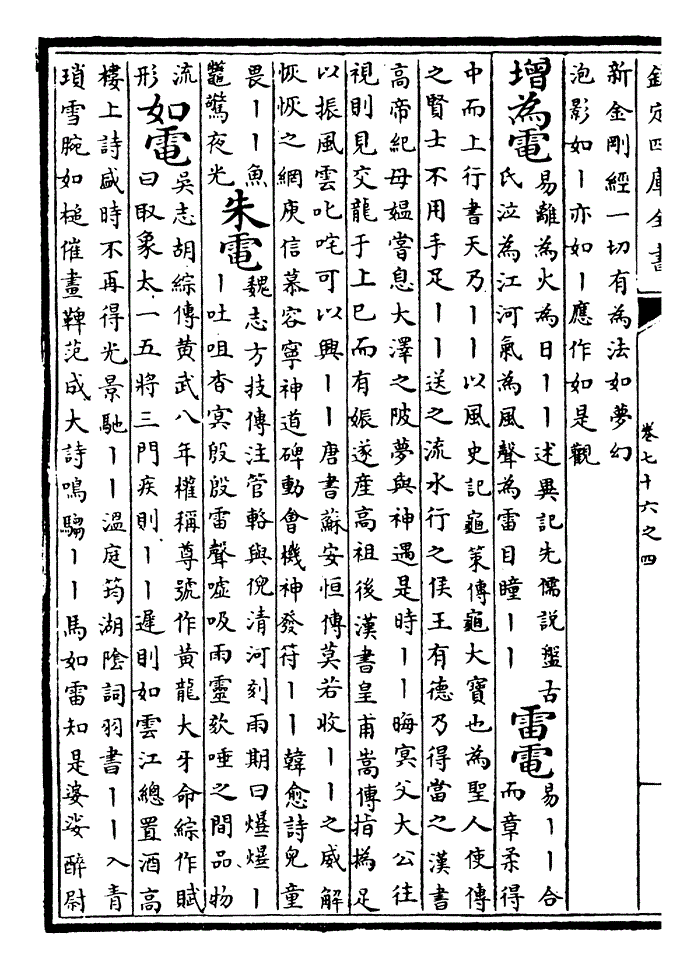 欽定四庫全書 卷七十六之四
新金剛經一切有為法如夢幻
泡影如丨亦如丨應作如是觀
增為電
易離為火為日丨丨述異記先儒説盤古
氏泣為江河氣為風聲為雷目瞳丨丨
雷電
易丨丨合
而章柔得
中而上行書天乃丨丨以風史記龜策傳龜大寶也為聖人使傳
之賢士不用手足丨丨送之流水行之侯王有德乃得當之漢書
高帝紀母媼嘗息大澤之陂夢與神遇是時丨丨晦冥父大公往
視則見交龍于上已而有娠遂産高祖後漢書皇甫嵩傳指撝足
以振風雲叱咤可以興丨丨唐書蘇安恒傳莫若收丨丨之威解
恢恢之網庾信慕容寧神道碑動會機神發符丨丨韓愈詩兒童
畏丨丨魚
鼈驚夜光
朱電
魏志方技傳注管輅與倪清河刻雨期曰爆爆丨
丨吐咀杳冥殷殷雷聲噓吸雨靈欬唾之間品物
流
形
如電
吳志胡綜傳黄武八年權稱尊號作黄龍大牙命綜作賦
曰取象太一五將三門疾則丨丨遲則如雲江總置酒高
樓上詩盛時不再得光景馳丨丨温庭筠湖陰詞羽書丨丨入青
瑣雪腕如槌催畫鞞范成大詩鳴騶丨丨馬如雷知是婆娑醉尉